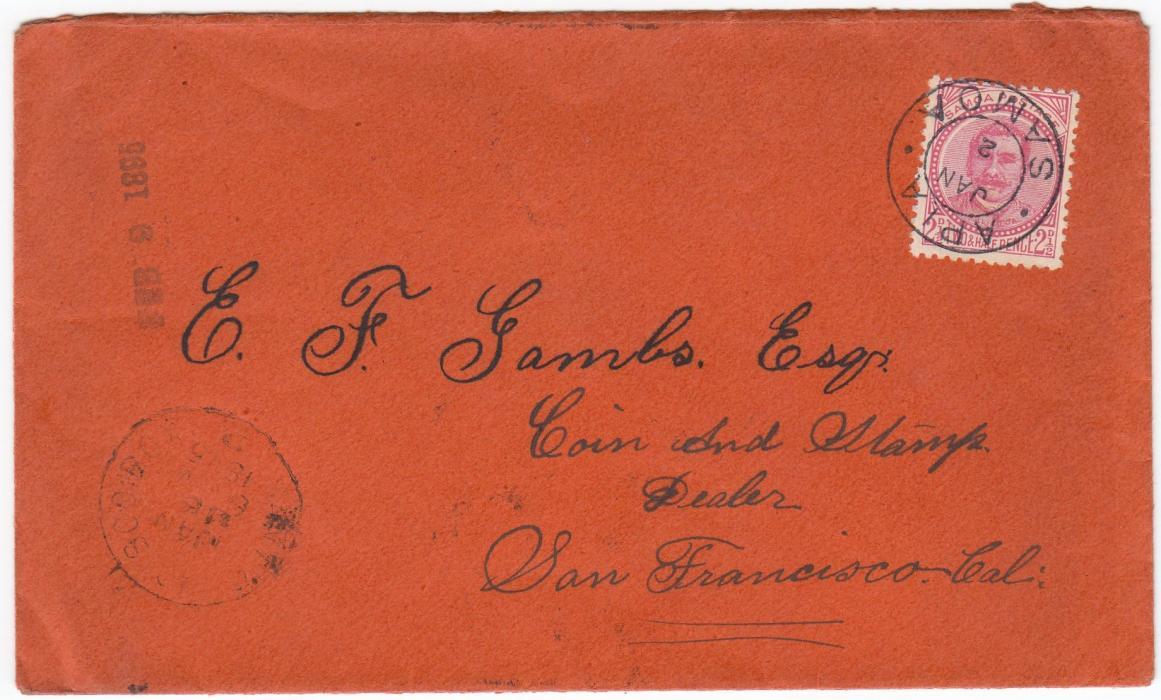 SAMOA
APIA · SAMOA ·
JAN
2
2D½ TWO & HALF PENCE 2D½
E. F. Gambs. Esqr.
Coin And Stamp
Dealer
San Francisco. Cal:
JAN